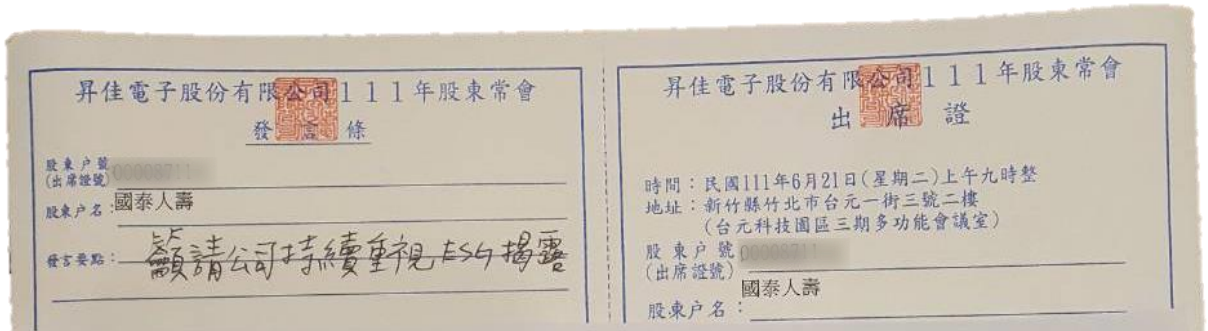 昇佳電子股份有限公司111年股東常會
發言條
股東戶號
(出席證號)
股東戶名：國泰人壽
發言要點：籲請公司持續重視ESG揭露
昇佳電子股份有限公司111年股東常會
出席證
時間：民國111年6月21日(星期二)上午九時整
地址：新竹縣竹北市台元一街三號二樓
(台元科技園區三期多功能會議室)
股東戶號
(出席證號)
股東戶名：國泰人壽